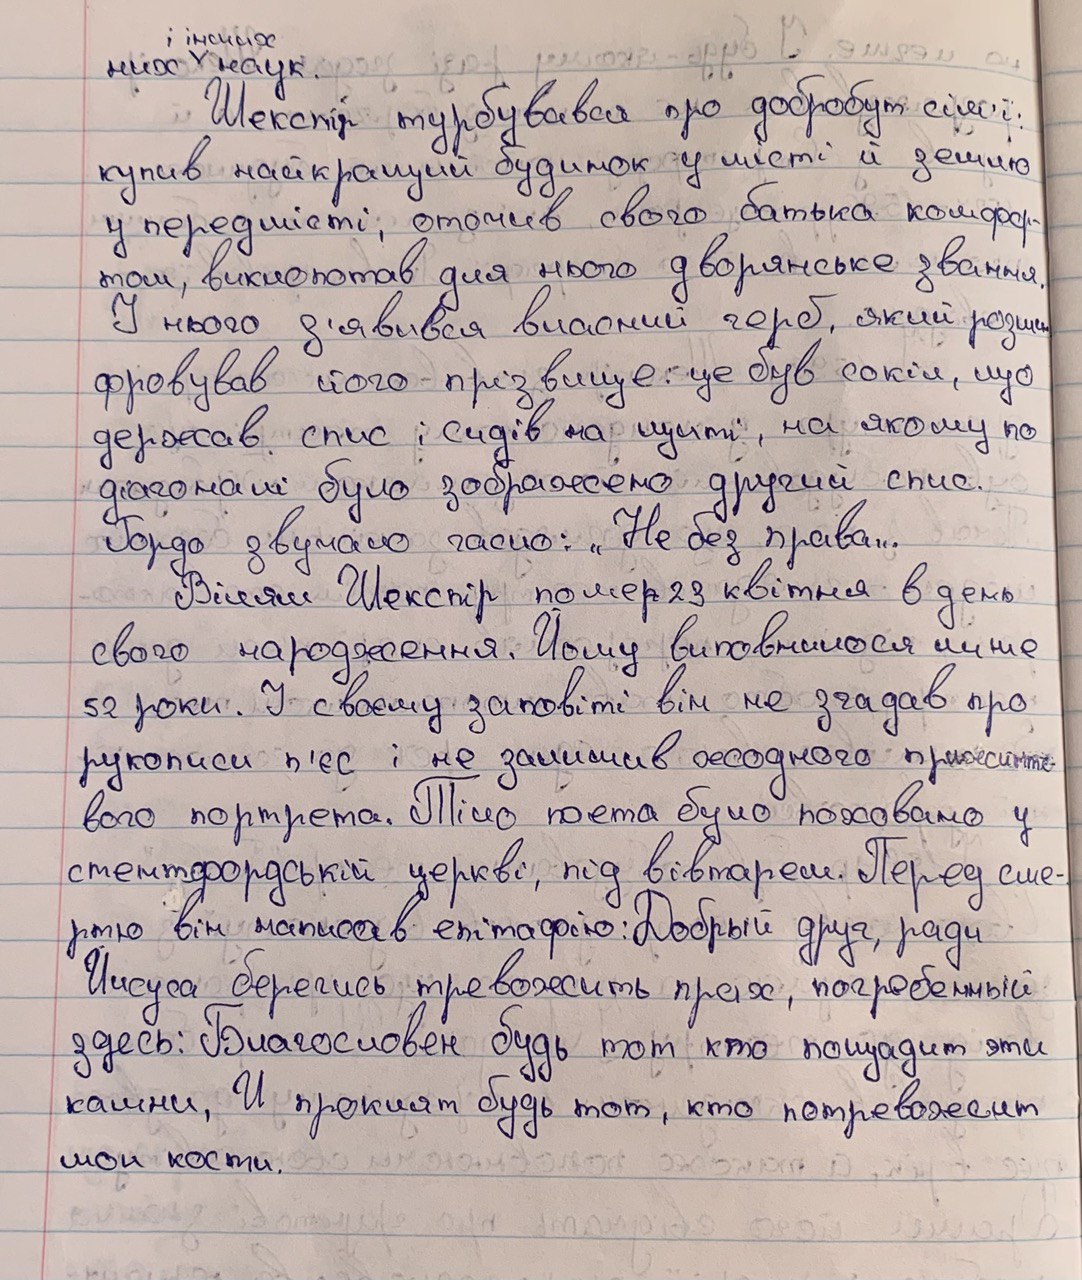 і інших
них наук.
Шекспір турбувався про добробут сім'ї:
купив найкращий будинок у місті й землю
у передмісті, оточив свого батька комфор-
том, виклопотав для нього дворянське звання.
У нього з'явився власний герб, який розши-
фровував його прізвище: це був сокіл, що
держав спис і сидів на щиті, на якому по
діагоналі було зображено другий спис.
Гордо звучало гасло: „Не без права".
Вільям Шекспір помер 23 квітня в день
свого народження. Йому виповнилося лише
52 роки. У своєму заповіті він не згадав про
рукописи п'єс і не залишив жодного прижиттє-
вого портрета. Тіло поета було поховано у
стентфордській церкві, під вівтарем. Перед сме-
ртю він написав епітафію: Добрый друг, ради
Иисуса берегись тревожить прах, погребенный
здесь: Благословен будь тот кто пощадит эти
камни, И проклят будь тот, кто потревожит
мои кости.